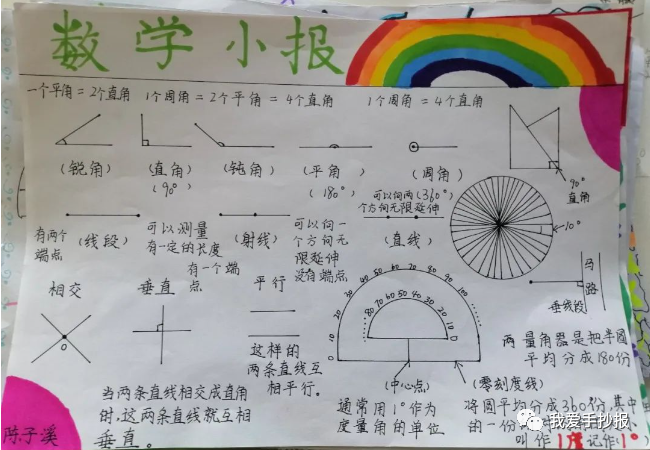 数学小报
一个平角=2个直角 1个周角=2个平角=4个直角 1个周角=4个直角
(锐角) (直角) (钝角) (平角) (周角)
(90°) (180°) (360°)
90°
直角
10°
有两个
端点
(线段)
可以测量
有一定的长度
(射线)
有一个端
点
可以向一
个方向无
限延伸
没有端点
可以向两
个方向无限延伸
(直线)
马路
垂线段
相交 垂直 平行
O
这样的
两条直线互
相平行。
当两条直线相交成直角
时,这两条直线就互相
垂直。
0 10 20 30 40 50 60 70 80 90 100
80 70 60 50 40 30 20 10 0
(中心点) (零刻度线)
通常用1°作为
度量角的单位
两量角器是把半圆
平均分成180份
将圆平均分成360份,其中
的一份
叫作1度记作(1°)
陈子溪
我爱手抄报